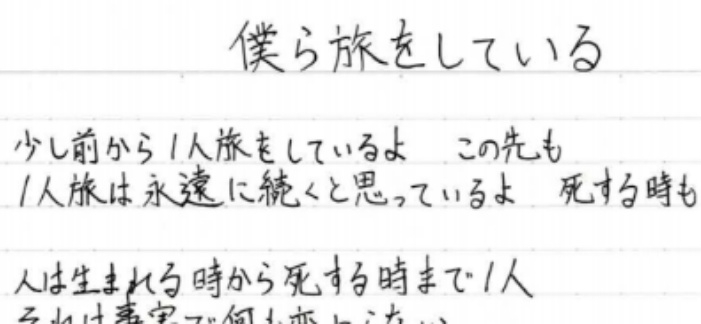 僕ら旅をしている
少し前から1人旅をしているよ この先も
1人旅は永遠に続くと思っているよ 死する時も
人は生まれる時から死する時まで1人
それは事実で何も変わらない